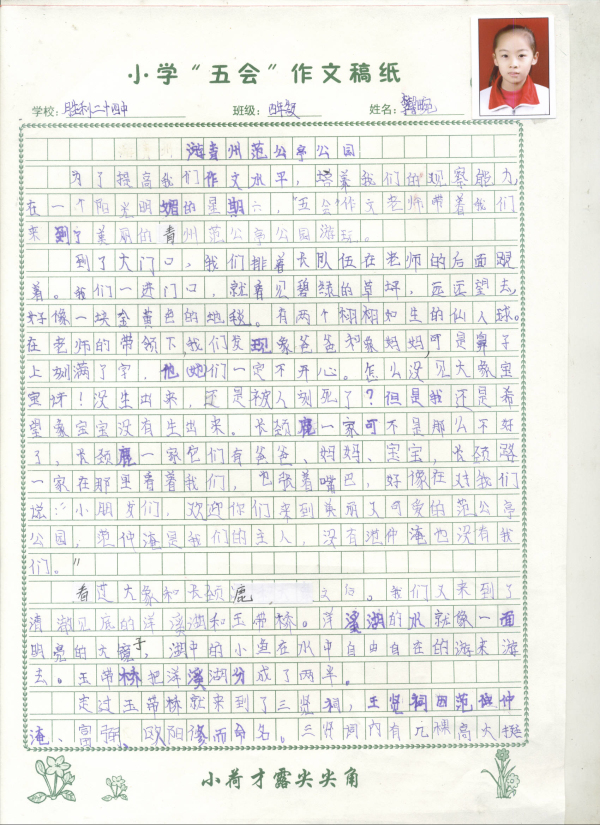 小学“五会”作文稿纸
学校：胜利二十四中 班级：四年级 姓名：
游青州范公亭公园
为了提高我们作文水平，培养我们的观察能力
在一个阳光明媚的星期六，“五会”作文老师带着我们
来到了美丽的青州范公亭公园游玩。
到了大门口，我们排着长队伍在老师的后面跟
着。我们一进门口，就看见碧绿的草坪，远远望去，
好像一块金黄色的地毯。有两个栩栩如生的仙人球。
在老师的带领下，我们发现象爸爸和象妈妈，可是鼻子
上刻满了字，他她们一定不开心。怎么没见大象宝
宝呀！没生出来，还是被人刻死了？但是我还是希
望象宝宝没有生出来。长颈鹿一家可不是那么不好
了，长颈鹿一家它们有爸爸、妈妈、宝宝，长颈鹿
一家在那里看着我们，也张着嘴巴，好像在对我们
说：“小朋友们，欢迎你们来到美丽又可爱的范公亭
公园，范仲淹是我们的主人，没有范仲淹也没有我
们。”
看过大象和长颈鹿，。我们又来到了
清澈见底的洋溪湖和玉带桥。洋溪湖的水就像一面
明亮的大镜子，湖中的小鱼在水中自由自在的游来游
去。玉带桥把洋溪湖分成了两半。
走过玉带桥就来到了三贤祠，三贤祠因范仲
淹、富弼、欧阳修而命名。三贤祠内有几棵高大挺
小荷才露尖尖角